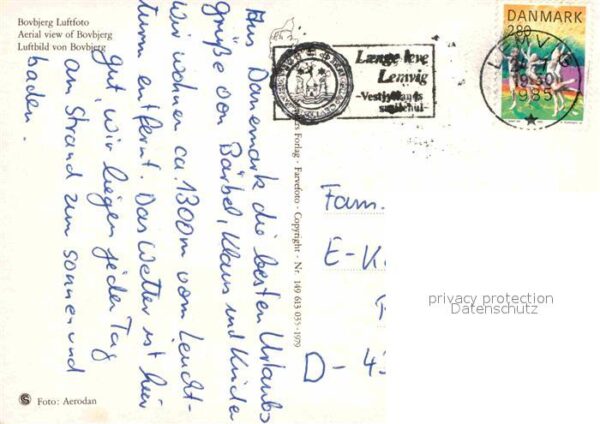 Bovbjerg Luftfoto
Aerial view of Bovbjerg
Luftbild von Bovbjerg
Aus Dänemark die besten Urlaubs
grüße von Bärbel, Klaus und Kinder
Wir wohnen ca. 1300m vom Leucht-
turm entfernt. Das Wetter ist hier
gut, wir liegen jeden Tag
am Strand zum sonnen und
baden.
Længe leve
Lemvig
-Vestjyllands
smilehul-
DANMARK
280
LEMVIG
19.30
1985
Forlag · Farvefoto · Copyright · Nr. 149 613 035 - 1979
Fam.
E-K
D-4
privacy protection
Datenschutz
Foto: Aerodan